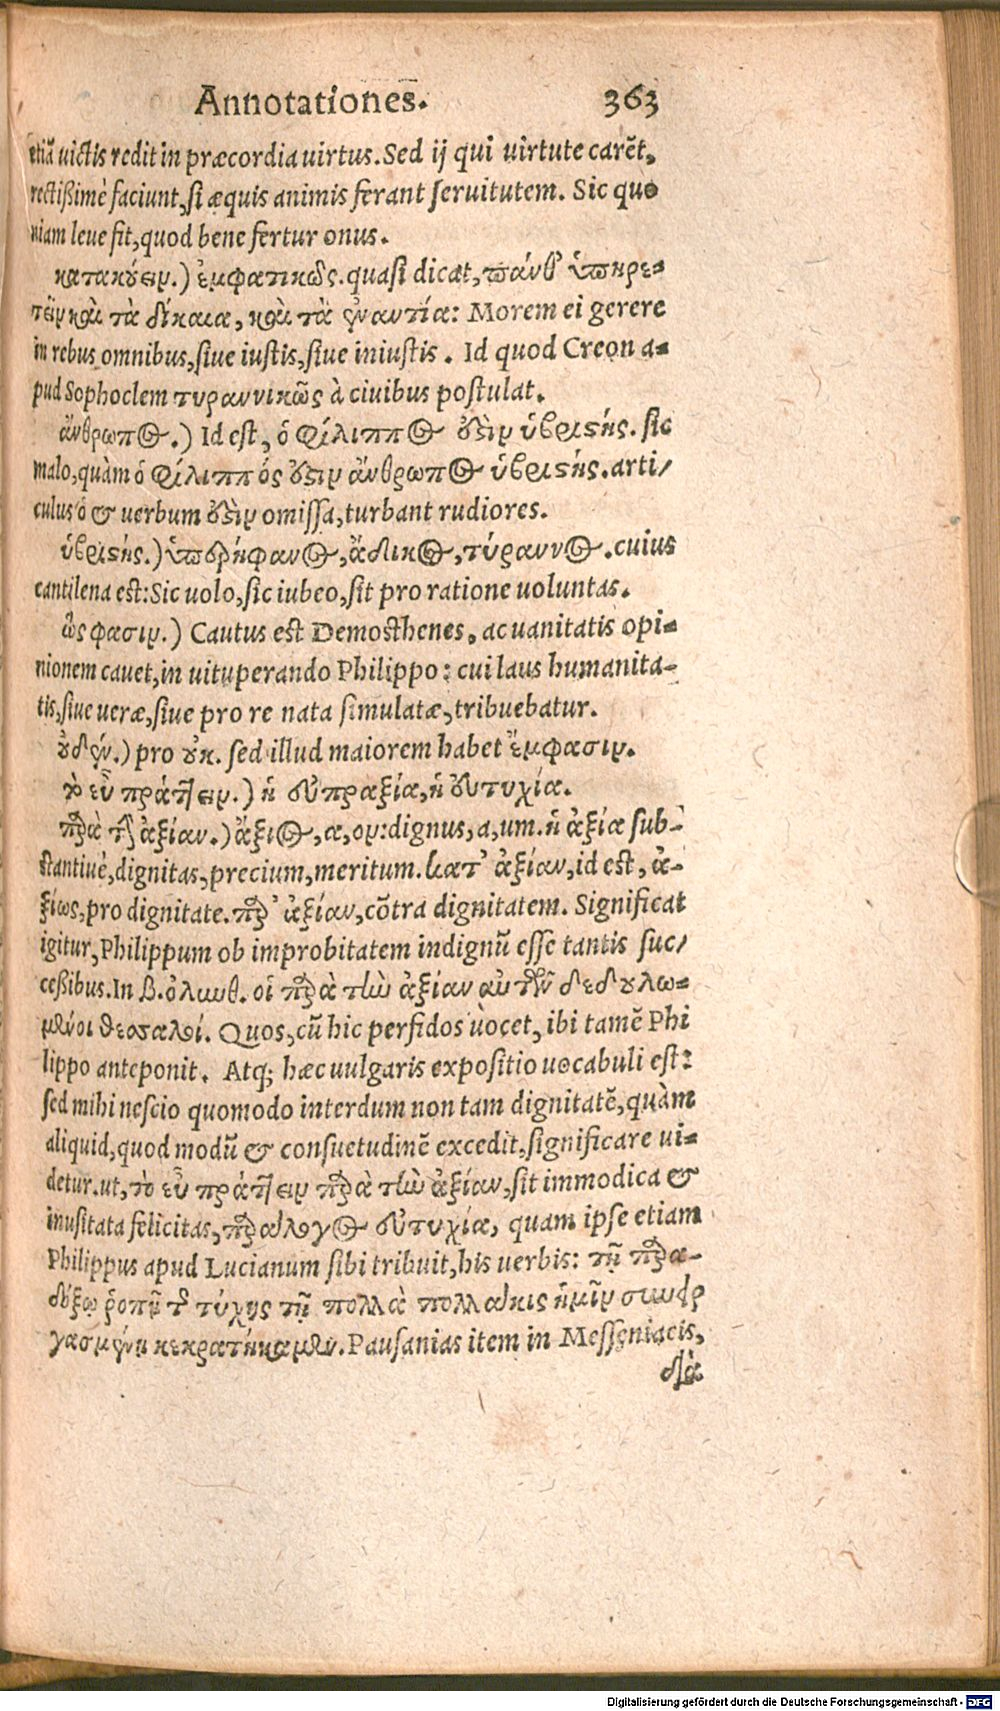 Annotationes. 363
etiā uictis redit in præcordia uirtus. Sed ij qui uirtute carēt,
rectißimè faciunt, si æquis animis ferant seruitutem. Sic quo
niam leue fit, quod bene fertur onus.
κατακούειν.) ἐμφατικῶς. quasi dicat, πάνθ' ὑπηρε-
τεῖν καὶ τὰ δίκαια, καὶ τὰ ἐναντία: Morem ei gerere
in rebus omnibus, siue iustis, siue iniustis. Id quod Creon a-
pud Sophoclem τυραννικῶς à ciuibus postulat.
ἄνθρωπος.) Id est, ὁ Φίλιππος οὖν ὑβριστής. sic
malo, quàm ὁ Φίλιππός οὖν ἄνθρωπος ὑβριστής. arti/
culus ὁ & uerbum omissa, turbant rudiores.
ὑβριστής.) ὑπερήφανος, ἄδικος, τύραννος. cuius
cantilena est: Sic uolo, sic iubeo, sit pro ratione uoluntas.
ὥς φασιν.) Cautus est Demosthenes, ac uanitatis opi-
nionem cauet, in uituperando Philippo: cui laus humanita-
tis, siue ueræ, siue pro re nata simulatæ, tribuebatur.
οὐδὲν.) pro οὐκ. sed illud maiorem habet ἔμφασιν.
τὸ εὖ πράττειν.) ἡ εὐπραξία, ἡ εὐτυχία.
παρὰ τὴν ἀξίαν.) ἄξιος, α, ον: dignus, a, um. ἡ ἀξία sub-
stantiuè, dignitas, precium, meritum. κατ' ἀξίαν, id est, ἀ-
ξίως, pro dignitate. παρ' ἀξίαν, cōtra dignitatem. Significat
igitur, Philippum ob improbitatem indignū esse tantis suc/
ceßibus. In β. ὀλυνθ. οἱ παρὰ τὴν ἀξίαν αὐτῶν δεδουλω-
μένοι θεσσαλοί. Quos, cū hic perfidos uocet, ibi tamē Phi
lippo anteponit. Atq; hæc uulgaris expositio uocabuli est:
sed mihi nescio quomodo interdum non tam dignitatē, quàm
aliquid, quod modū & consuetudinē excedit, significare ui-
detur. ut, τὸ εὖ πράττειν παρὰ τὴν ἀξίαν, sit immodica &
inusitata felicitas, παράλογος εὐτυχία, quam ipse etiam
Philippus apud Lucianum sibi tribuit, his uerbis: τῇ παρα-
δόξῳ ῥοπῇ τῆς τύχης τῇ πολλὰ πολλάκις ἡμῖν συνερ
γασμένῃ κεκρατήκαμεν. Pausanias item in Messeniacis,
διὰ
Digitalisierung gefördert durch die Deutsche Forschungsgemeinschaft - DFG